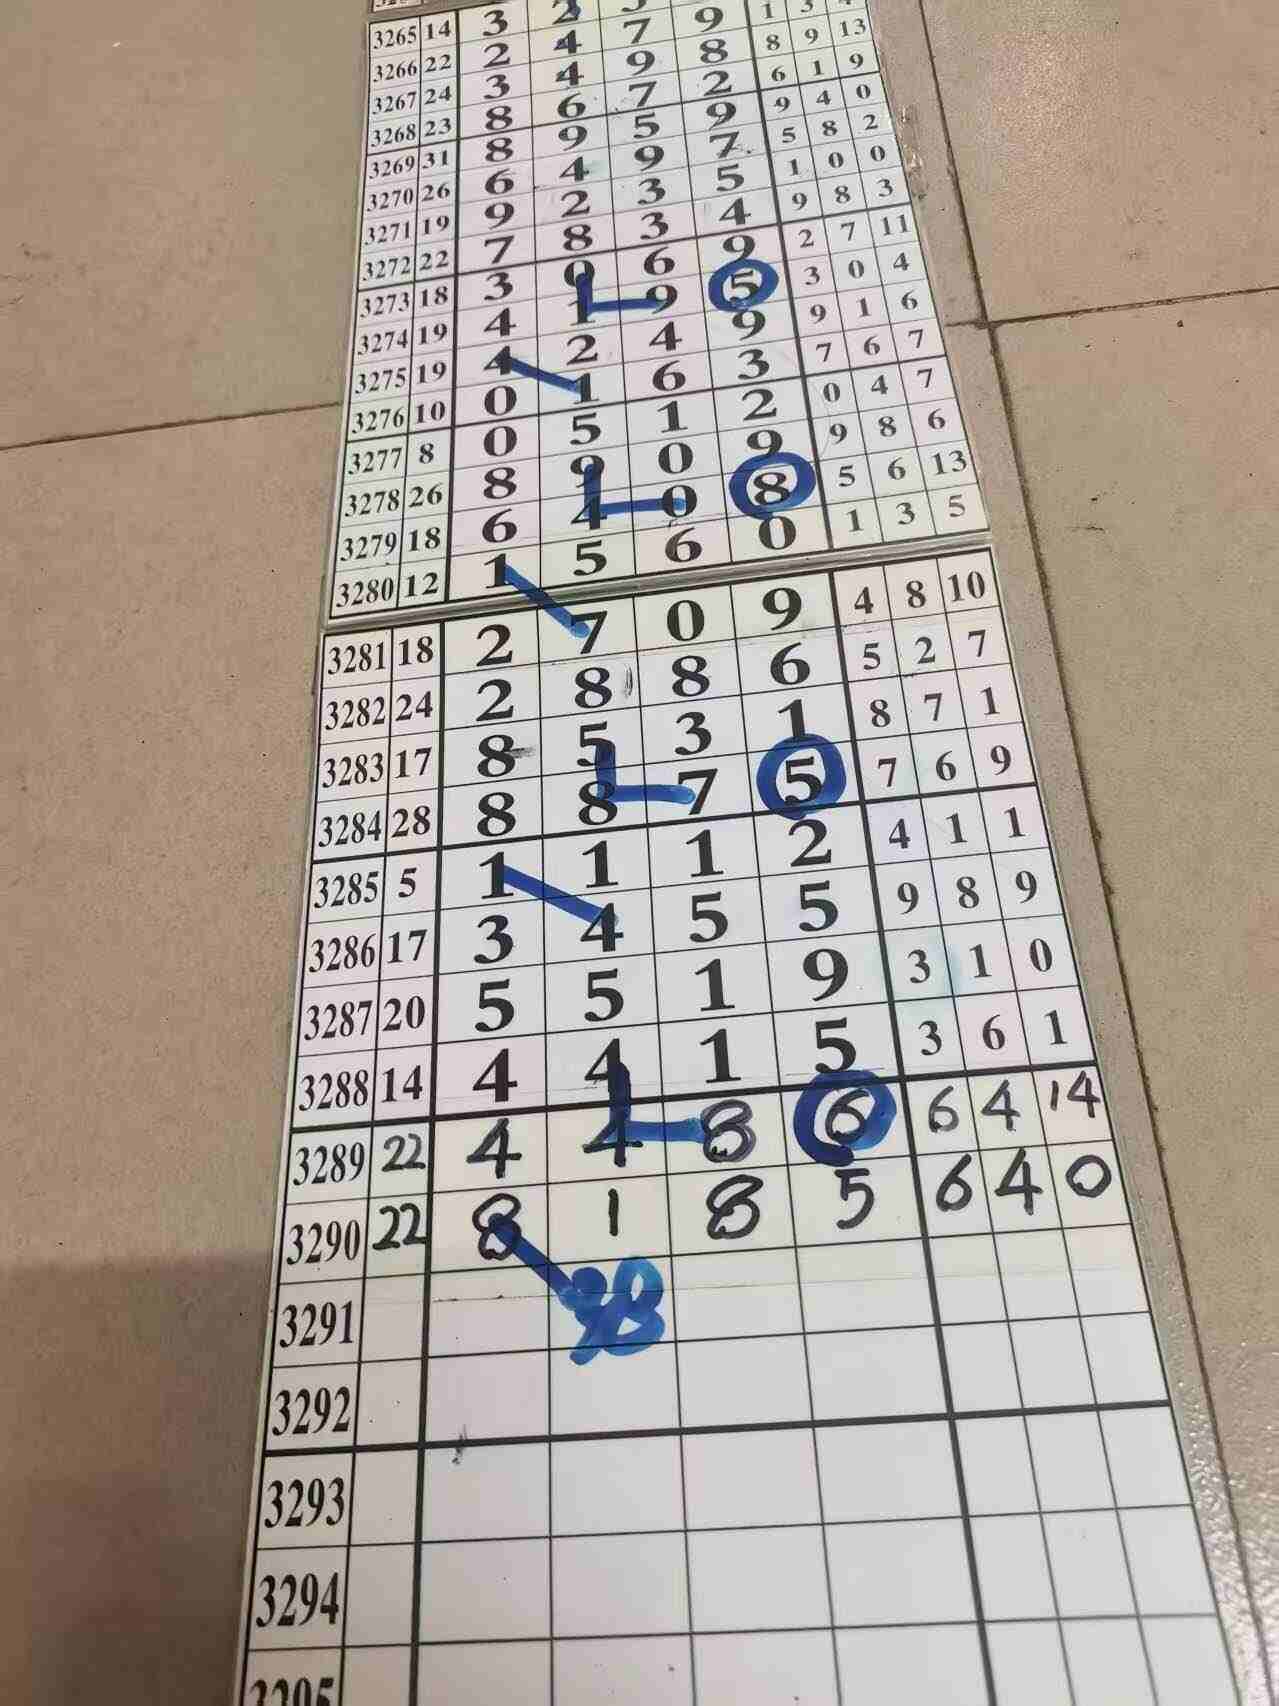 3265 14 3 2
3266 22 2 4 7 9 1 3
3267 24 3 4 9 8 8 9 13
3268 23 8 6 7 2 6 1 9
3269 31 8 9 5 9 9 4 0
3270 26 6 4 9 7 5 8 2
3271 19 9 2 3 5 1 0 0
3272 22 7 8 3 4 9 8 3
3273 18 3 0 6 9 2 7 11
3274 19 4 1 9 5 3 0 4
3275 19 4 2 4 9 9 1 6
3276 10 0 1 6 3 7 6 7
3277 8 0 5 1 2 0 4 7
3278 26 8 9 0 9 9 8 6
3279 18 6 4 0 8 5 6 13
3280 12 1 5 6 0 1 3 5
3281 18 2 7 0 9 4 8 10
3282 24 2 8 8 6 5 2 7
3283 17 8 5 3 1 8 7 1
3284 28 8 8 7 5 7 6 9
3285 5 1 1 1 2 4 1 1
3286 17 3 4 5 5 9 8 9
3287 20 5 5 1 9 3 1 0
3288 14 4 4 1 5 3 6 1
3289 22 4 4 8 6 6 4 14
3290 22 8 1 8 5 6 4 0
3291 98
3292
3293
3294
3295